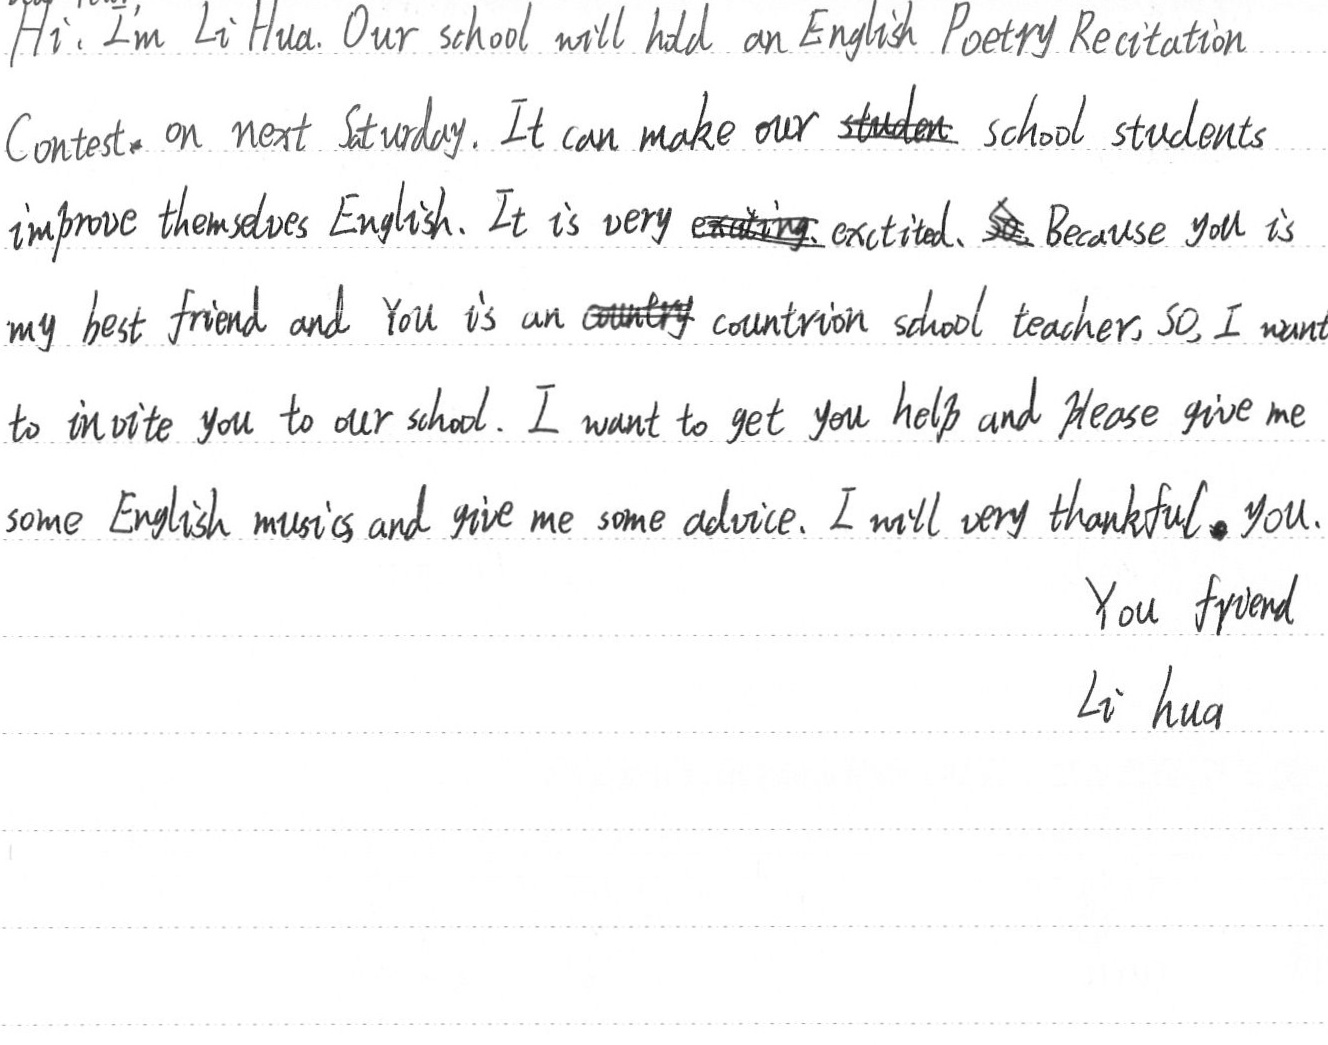 Hi. I'm Li Hua. Our school will hold an English Poetry Recitation
Contest. on next Saturday. It can make our school students
improve themselves English. It is very exctited. Because you is
my best friend and You is an countrion school teacher, so, I want
to invite you to our school. I want to get you help and please give me
some English musics and give me some advice. I will very thankful. you.
You friend
Li hua